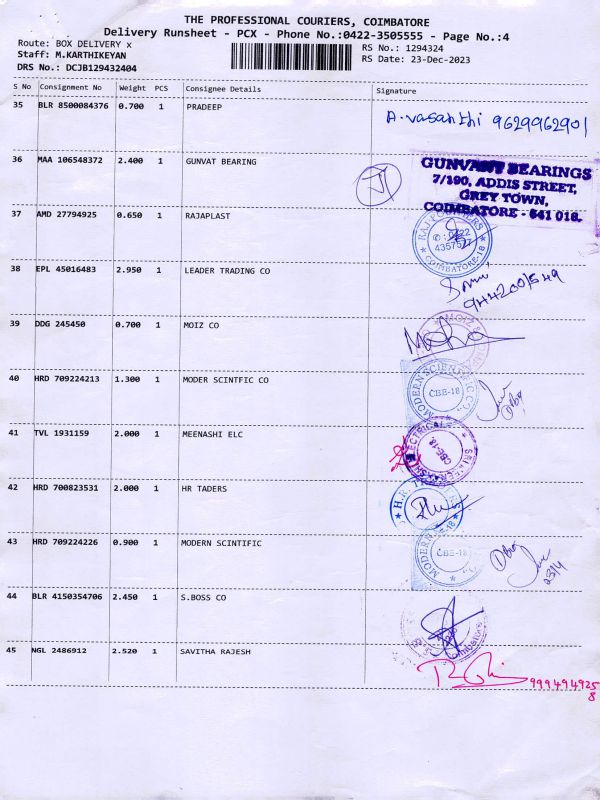 THE PROFESSIONAL COURIERS, COIMBATORE
Delivery Runsheet - PCX - Phone No.:0422-3505555 - Page No.:4
Route: BOX DELIVERY x
Staff: M.KARTHIKEYAN
DRS No.: DCJB129432404
RS No.: 1294324
RS Date: 23-Dec-2023
S No Consignment No Weight PCS Consignee Details Signature
35 BLR 8500084376 0.700 1 PRADEEP
A. vasanthi 9629962901
36 MAA 106548372 2.400 1 GUNVAT BEARING
GUNVANT BEARINGS
7/190, ADDIS STREET,
GREY TOWN,
COIMBATORE - 641 018.
37 AMD 27794925 0.650 1 RAJAPLAST
0422
4357527
COIMBATORE-18
38 EPL 45016483 2.950 1 LEADER TRADING CO
39 DDG 245450 0.700 1 MOIZ CO
MOIZ
40 HRD 709224213 1.300 1 MODER SCINTFIC CO
MODERN SCIENTIFIC CO.
CBE-18
41 TVL 1931159 2.000 1 MEENASHI ELC
ELECTRICAL
CBE-18
42 HRD 700823531 2.000 1 HR TADERS
H.R. TRADERS
43 HRD 709224226 0.900 1 MODERN SCINTIFIC
MODERN
CBE-18
44 BLR 4150354706 2.450 1 S.BOSS CO
Coimbatore
45 NGL 2486912 2.520 1 SAVITHA RAJESH
9994949258